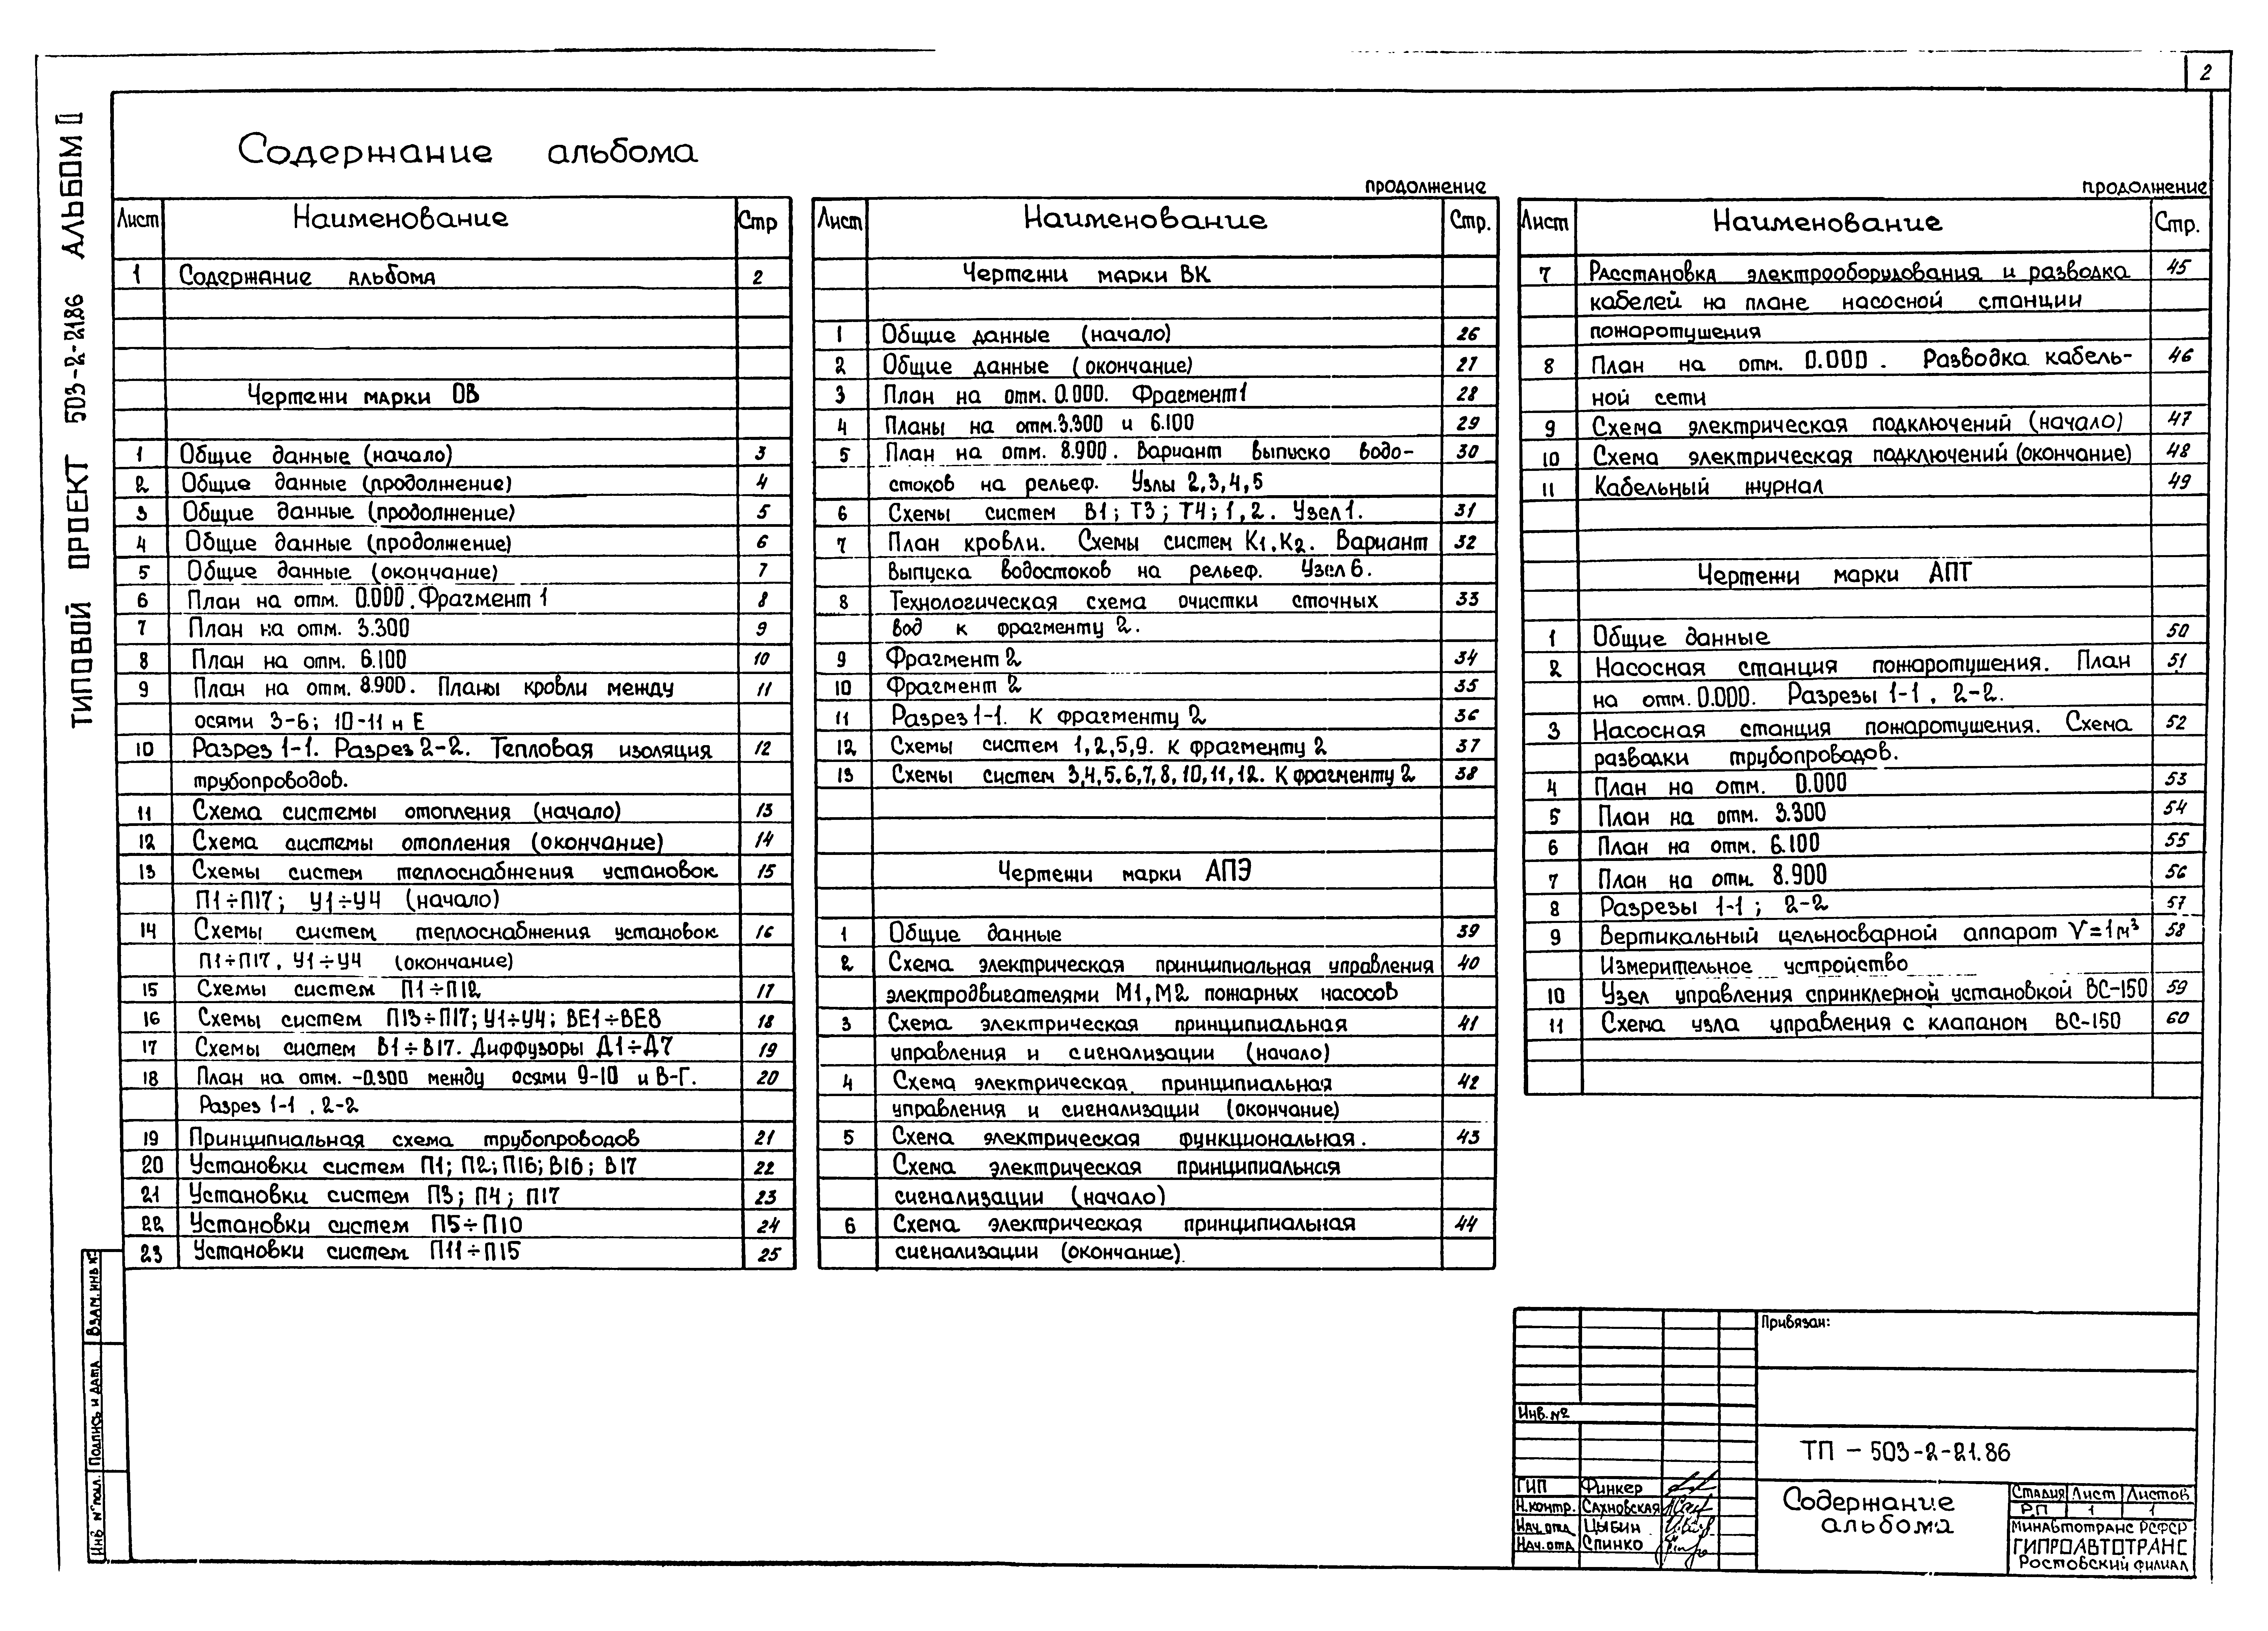 2
ТИПОВОЙ ПРОЕКТ 503-2-21.86 АЛЬБОМ II
Содержание альбома
Лист Наименование Стр
1 Содержание альбома 2
Чертежи марки ОВ
1 Общие данные (начало) 3
2 Общие данные (продолжение) 4
3 Общие данные (продолжение) 5
4 Общие данные (продолжение) 6
5 Общие данные (окончание) 7
6 План на отм. 0.000. Фрагмент 1 8
7 План на отм. 3.300 9
8 План на отм. 6.100 10
9 План на отм. 8.900. Планы кровли между 11
осями 3-6; 10-11 и Е
10 Разрез 1-1. Разрез 2-2. Тепловая изоляция 12
трубопроводов.
11 Схема системы отопления (начало) 13
12 Схема системы отопления (окончание) 14
13 Схемы систем теплоснабжения установок 15
П1÷П17; У1÷У4 (начало)
14 Схемы систем теплоснабжения установок 16
П1÷П17, У1÷У4 (окончание)
15 Схемы систем П1÷П12 17
16 Схемы систем П13÷П17; У1÷У4; ВЕ1÷ВЕ8 18
17 Схемы систем В1÷В17. Диффузоры Д1÷Д7 19
18 План на отм. -0.300 между осями 9-10 и В-Г. 20
Разрез 1-1, 2-2
19 Принципиальная схема трубопроводов 21
20 Установки систем П1; П2; П16; В16; В17 22
21 Установки систем П3; П4; П17 23
22 Установки систем П5÷П10 24
23 Установки систем П11÷П15 25
продолжение
Лист Наименование Стр.
Чертежи марки ВК
1 Общие данные (начало) 26
2 Общие данные (окончание) 27
3 План на отм. 0.000. Фрагмент 1 28
4 Планы на отм. 3.300 и 6.100 29
5 План на отм. 8.900. Вариант выпуска водо- 30
стоков на рельеф. Узлы 2,3,4,5
6 Схемы систем В1; Т3; Т4; 1, 2. Узел 1. 31
7 План кровли. Схемы систем К1, К2. Вариант 32
выпуска водостоков на рельеф. Узел 6.
8 Технологическая схема очистки сточных 33
вод к фрагменту 2.
9 Фрагмент 2 34
10 Фрагмент 2 35
11 Разрез 1-1. К фрагменту 2 36
12 Схемы систем 1,2,5,9. К фрагменту 2 37
13 Схемы систем 3,4,5.6,7,8,10,11,12. К фрагменту 2 38
Чертежи марки АПЭ
1 Общие данные 39
2 Схема электрическая принципиальная управления 40
электродвигателями М1, М2 пожарных насосов
3 Схема электрическая принципиальная 41
управления и сигнализации (начало)
4 Схема электрическая принципиальная 42
управления и сигнализации (окончание)
5 Схема электрическая функциональная. 43
Схема электрическая принципиальная
сигнализации (начало)
6 Схема электрическая принципиальная 44
сигнализации (окончание).
продолжение
Лист Наименование Стр.
7 Расстановка электрооборудования и разводка 45
кабелей на плане насосной станции
пожаротушения
8 План на отм. 0.000. Разводка кабель- 46
ной сети
9 Схема электрическая подключений (начало) 47
10 Схема электрическая подключений (окончание) 48
11 Кабельный журнал 49
Чертежи марки АПТ
1 Общие данные 50
2 Насосная станция пожаротушения. План 51
на отм. 0.000. Разрезы 1-1, 2-2.
3 Насосная станция пожаротушения. Схема 52
разводки трубопроводов.
4 План на отм. 0.000 53
5 План на отм. 3.300 54
6 План на отм. 6.100 55
7 План на отм. 8.900 56
8 Разрезы 1-1; 2-2 57
9 Вертикальный цельносварной аппарат V=1м³ 58
Измерительное устройство
10 Узел управления спринклерной установкой ВС-150 59
11 Схема узла управления с клапаном ВС-150 60
Взам. инв. №
Подпись и дата
Инв. № подл.
Привязан:
Инв. №
ТП - 503-2-21.86
ГИП Финкер
Н.контр. Сахновская
Нач. отд Цыбин
Нач. отд Спинко
Содержание
альбома
Стадия Лист Листов
РП 1 1
Минавтотранс РСФСР
ГИПРОАВТОТРАНС
Ростовский филиал